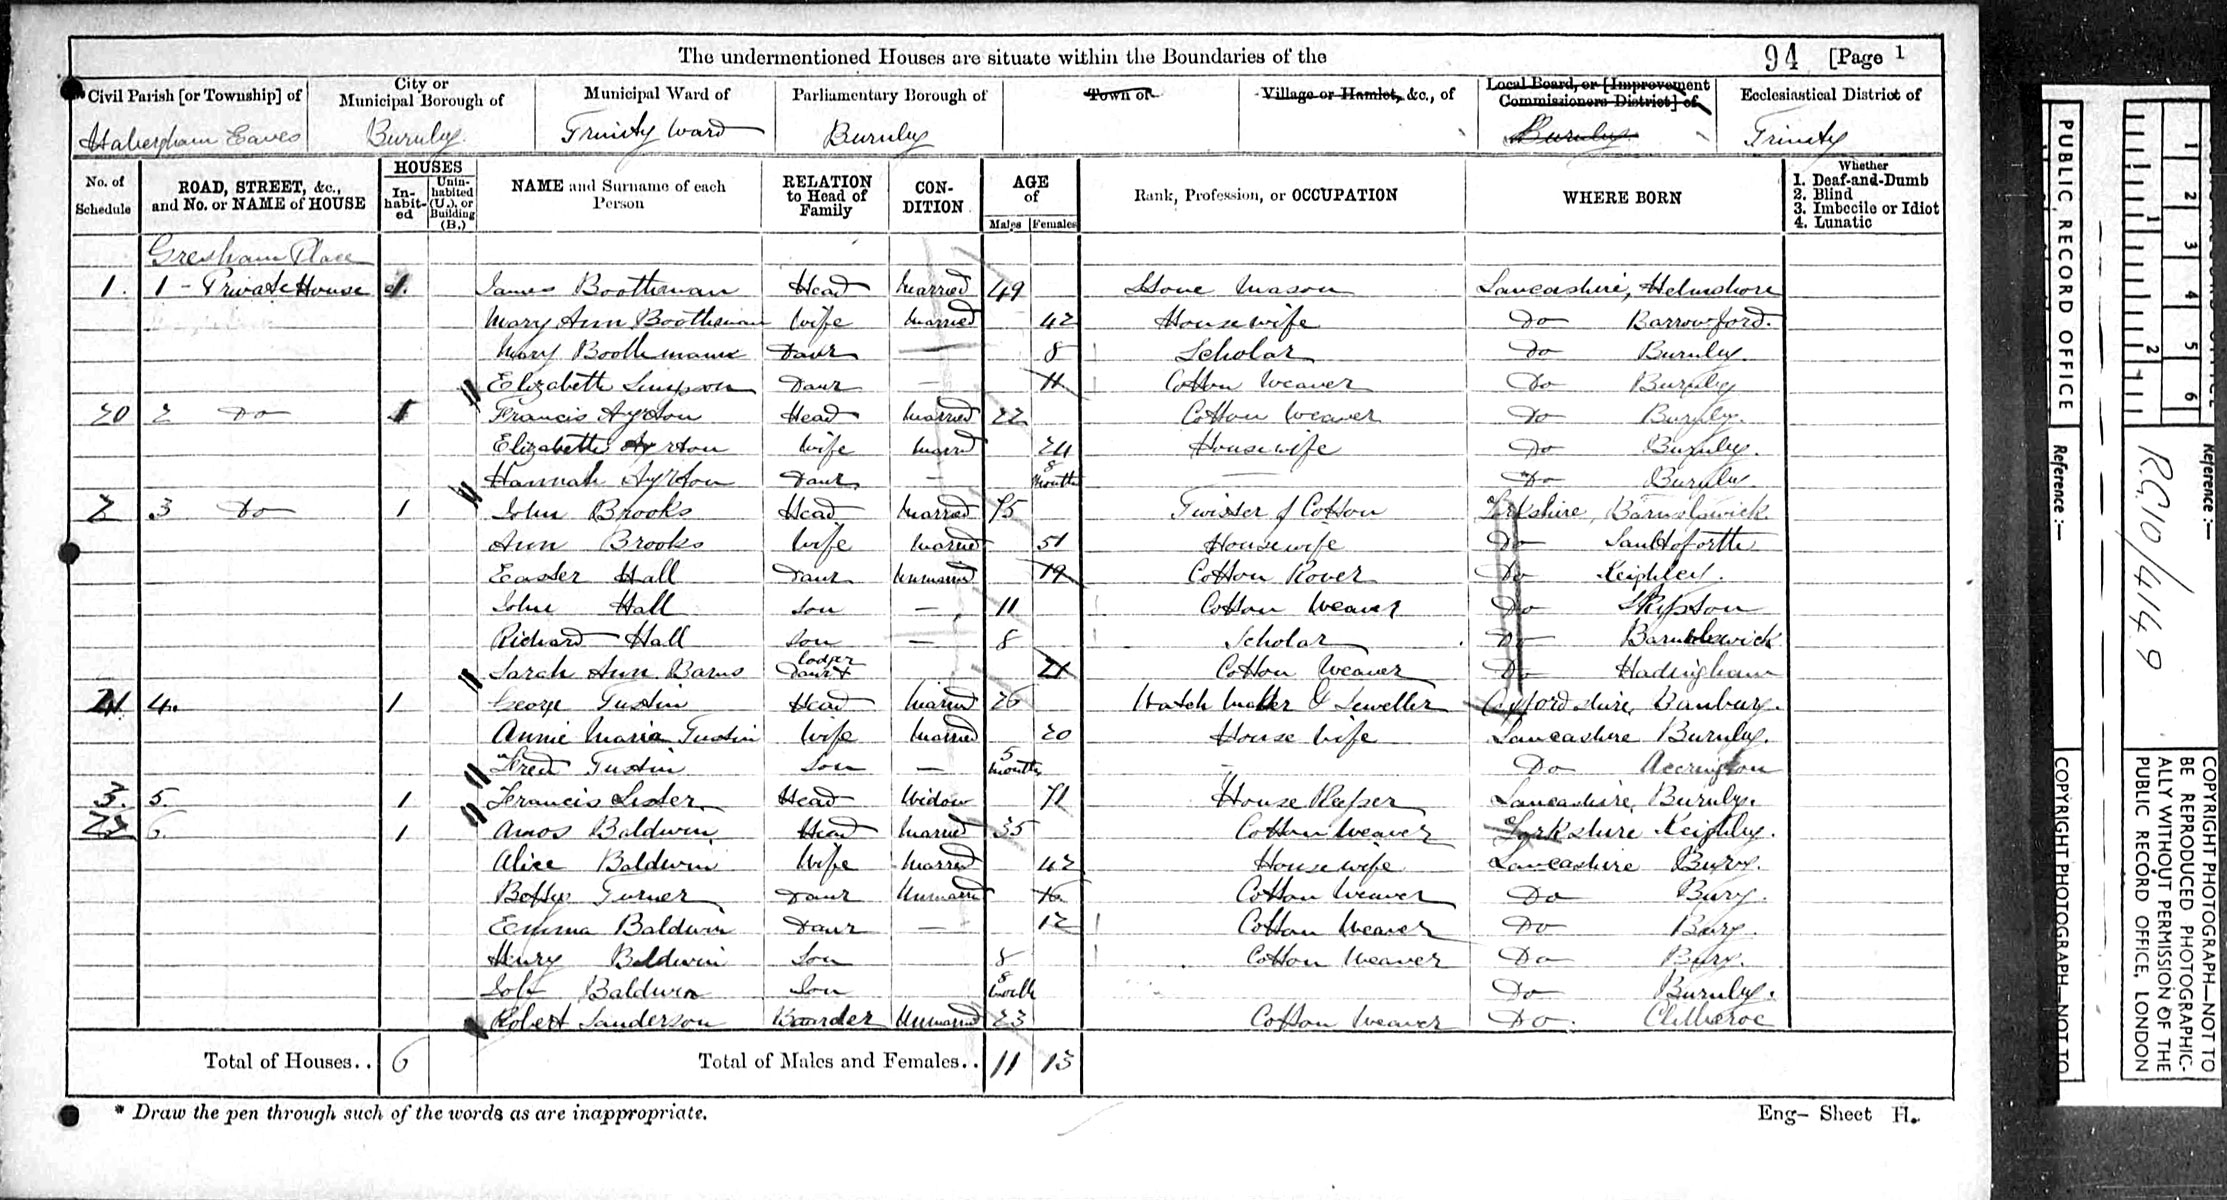 The undermentioned Houses are situate within the Boundaries of the 94 [Page 1
Civil Parish [or Township] of City or Municipal Borough of Municipal Ward of Parliamentary Borough of Town of Village or Hamlet, &c., of Local Board, or [Improvement Commissioners District] of Ecclesiastical District of
Habergham Eaves Burnley Trinity Ward Burnley Burnley Trinity
No. of Schedule ROAD, STREET, &c., and No. or NAME of HOUSE HOUSES Inhabited Uninhabited (U.), or Building (B.) NAME and Surname of each Person RELATION to Head of Family CONDITION AGE of Males Females Rank, Profession, or OCCUPATION WHERE BORN Whether 1. Deaf-and-Dumb 2. Blind 3. Imbecile or Idiot 4. Lunatic
Gresham Place
1. 1 - Private House 1. James Boothman Head Married 49 Stone Mason Lancashire, Helmshore
Mary Ann Boothman Wife Married 42 Housewife Do Barrowford.
Mary Boothman Daur — 8 Scholar Do Burnley.
Elizabeth Simpson Daur — 11 Cotton Weaver Do Burnley
20 2 Do 1 Francis Ayrton Head Married 22 Cotton Weaver Do Burnley.
Elizabeth Ayrton Wife Married 24 Housewife Do Burnley.
Hannah Ayrton Daur — 8 Months — Do Burnley.
2 3 Do 1 John Brooks Head Married 75 Twister of Cotton Yorkshire, Barnolswick.
Ann Brooks Wife Married 51 Housewife Do Salterforth
Easter Hall Daur Unmarried 19 Cotton Rover Do Keighley.
John Hall Son — 11 Cotton Weaver Do Skipton
Richard Hall Son — 8 Scholar Do Barnolswick
Sarah Ann Barns lodger Daur 21 Cotton Weaver Do
21 4. 1 George Tustin Head Married 26 Watch Maker & Jeweller Oxfordshire, Banbury.
Annie Maria Tustin Wife Married 20 House Wife Lancashire Burnley.
Fred Tustin Son — 5 Months — Do Accrington
3. 5. 1 Francis Lister Head Widow 71 House Keeper Lancashire, Burnley.
22 6. 1 Amos Baldwin Head Married 35 Cotton Weaver Yorkshire Keighley.
Alice Baldwin Wife Married 42 Housewife Lancashire Bury.
Betsy Turner Daur Unmarried 16 Cotton Weaver Do Bury.
Emma Baldwin Daur — 12 Cotton Weaver Do Bury.
Henry Baldwin Son 8 Cotton Weaver Do Bury.
Job Baldwin Son 8 Month Do Burnley.
Robert Sanderson Boarder Unmarried 23 Cotton Weaver Do. Clitheroe
Total of Houses.. 6 Total of Males and Females.. 11 13
* Draw the pen through such of the words as are inappropriate. Eng- Sheet H.
PUBLIC RECORD OFFICE
Reference :—
COPYRIGHT PHOTOGRAPH—NOT TO
1 2 3 4 5 6
1 2
Reference :—
R.G.10/4149
COPYRIGHT PHOTOGRAPH—NOT TO
BE REPRODUCED PHOTOGRAPHIC-
ALLY WITHOUT PERMISSION OF THE
PUBLIC RECORD OFFICE, LONDON